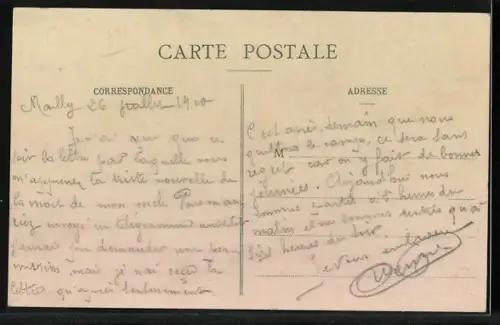 CARTE POSTALE
CORRESPONDANCE
ADRESSE
Mailly 26 Juillet 1910
Je n'ai reçu que ce
soir la lettre par laquelle vous
m'apprenez la triste nouvelle de
la mort de mon oncle
envoyé un télégramme
demander une
mais je n'ai reçu la
lettre qu'après
M
C'est après demain que nous
quittons le camp, ce sera sans
regret car on y fait de bonnes
journées. Aujourd'hui nous
sommes partis à 3 heures du
matin et ne sommes rentrés qu'à
heures du soir
Je vous embrasse